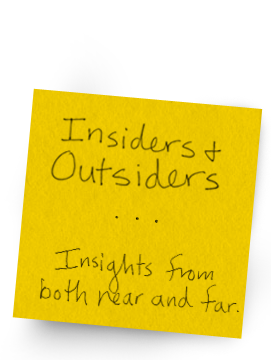 Insiders +
Outsiders
...
Insights from
both near and far.